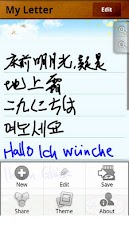 My Letter
Edit
床前明月光,疑是
地上霜
こんにちは
여보세요
Hallo Ich wünche
New
Edit
Save
Share
Theme
About